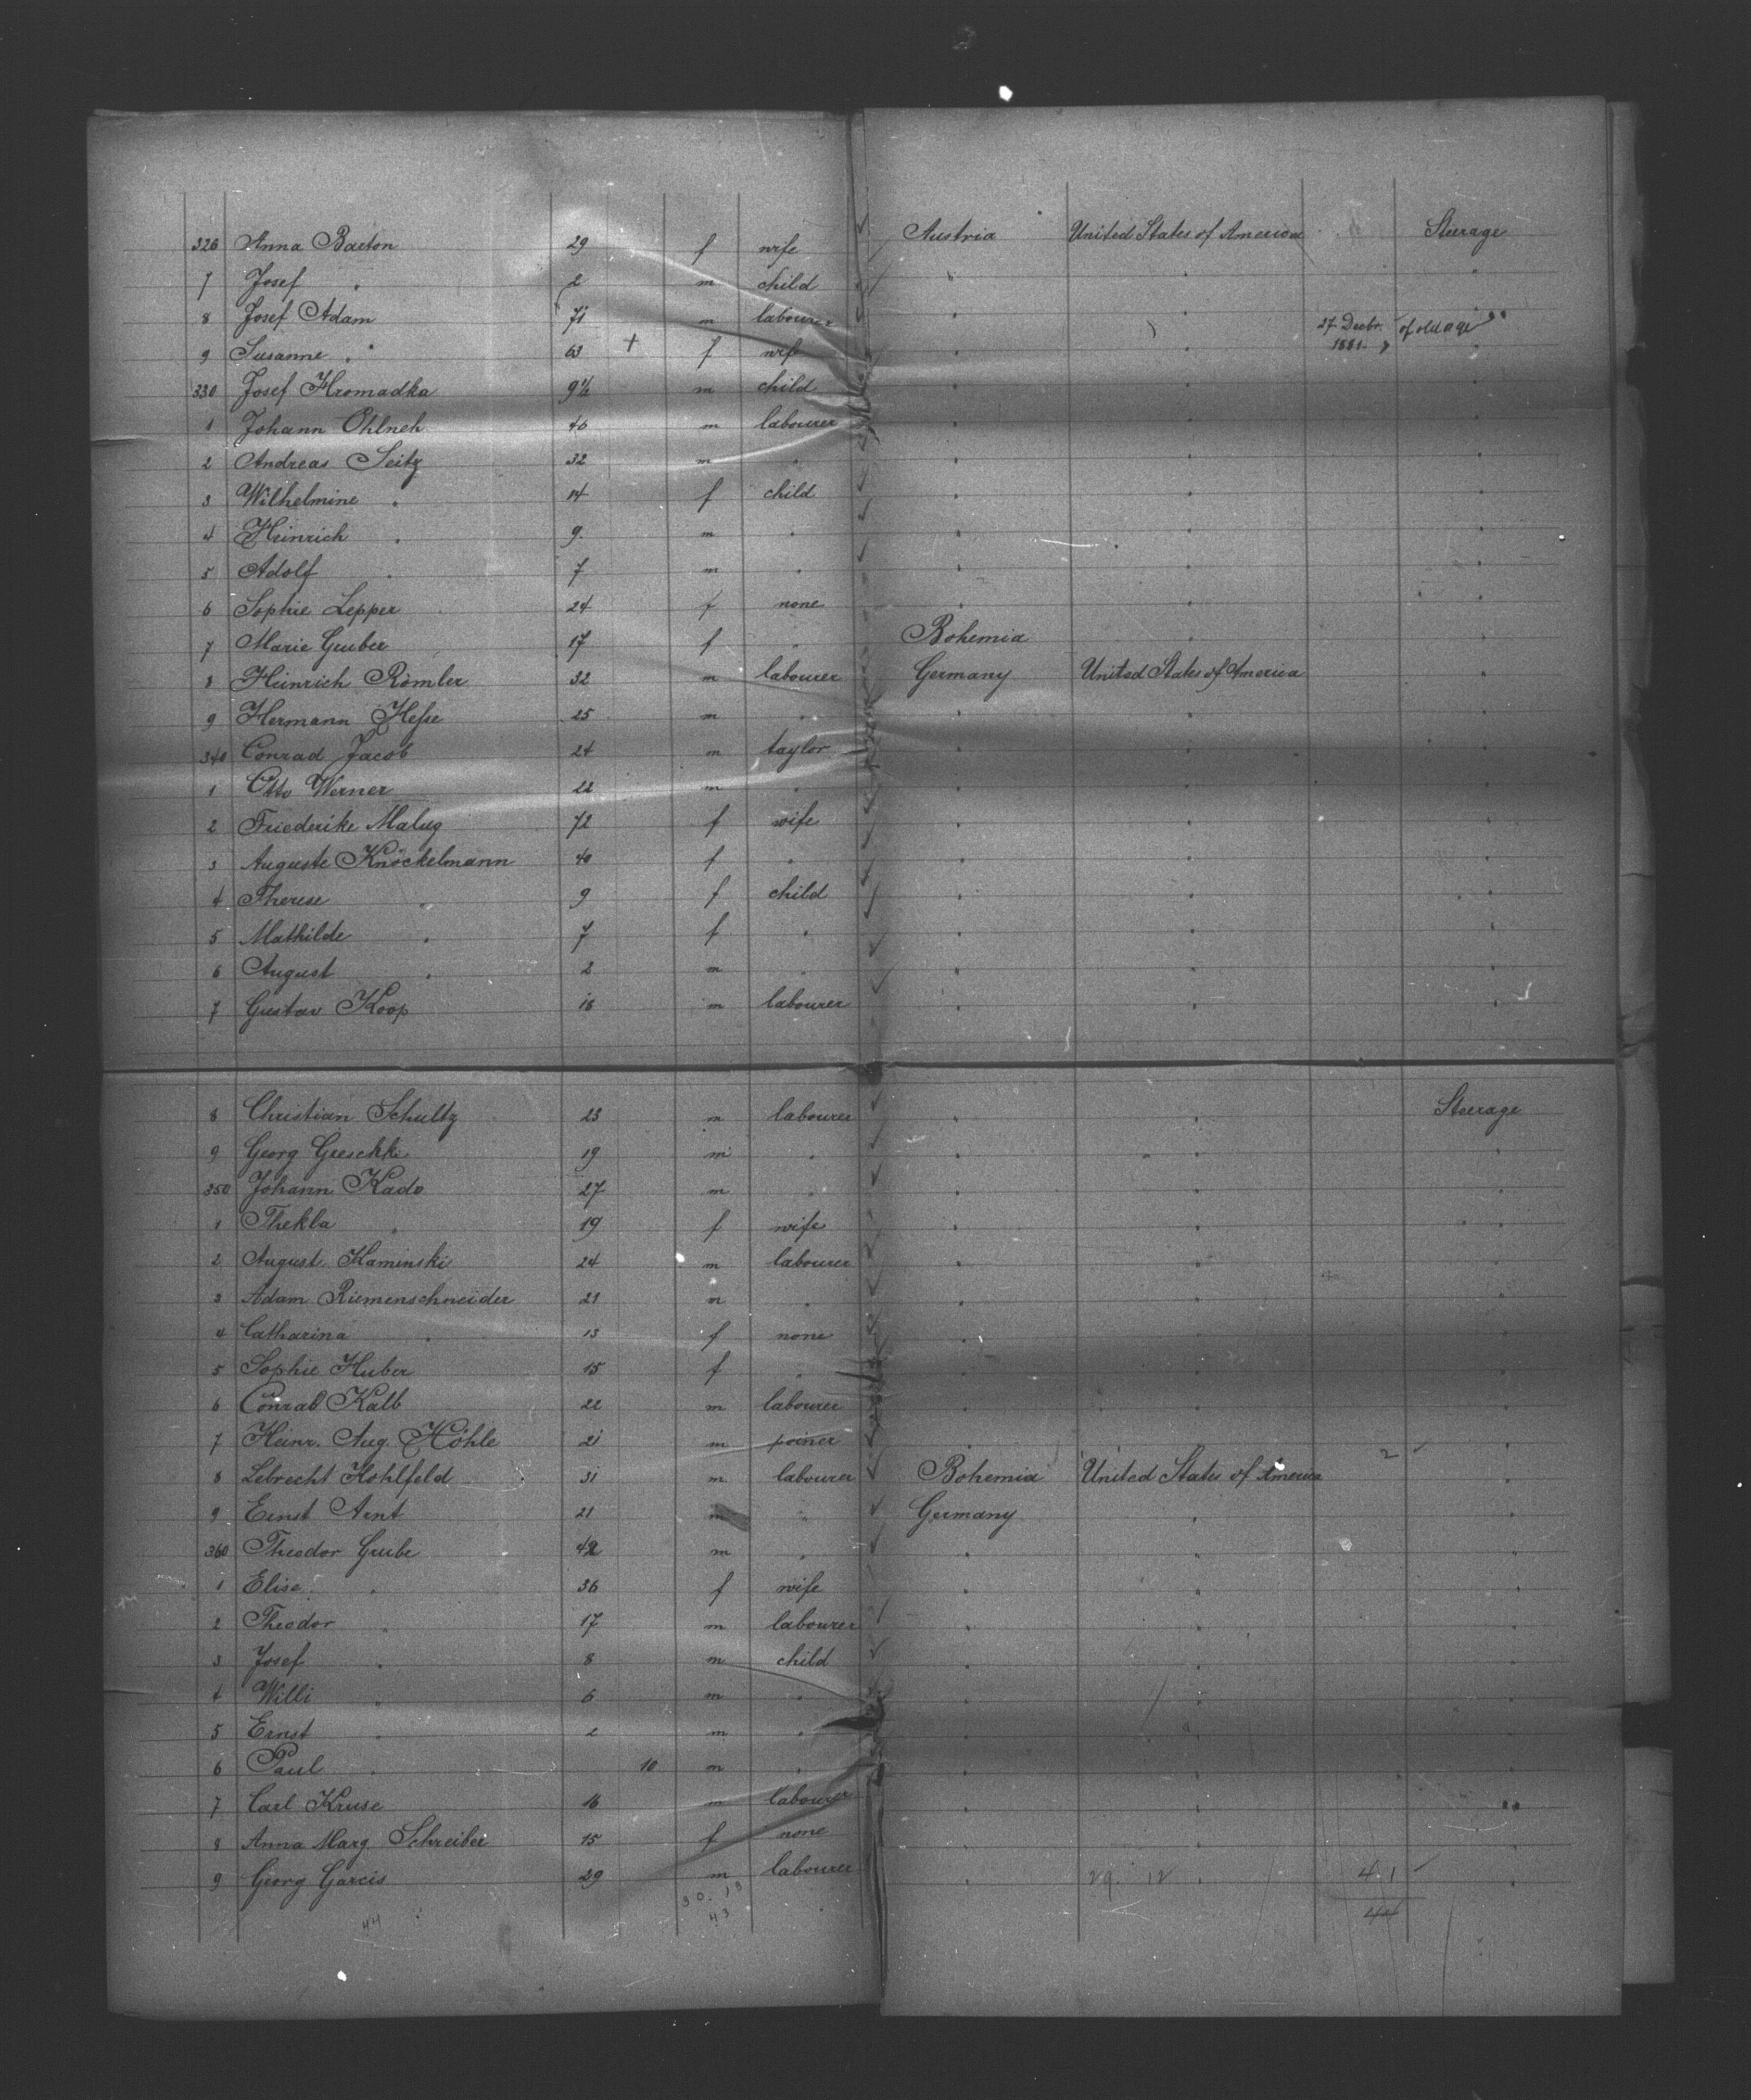 326 Anna Barton 29 f wife Austria United States of America Steerage
7 Josef " 2 m child " " "
8 Josef Adam 71 m labourer " 27 Decbr. of old age "
9 Susanne " 63 + f wife " " 1881. "
330 Josef Hromadka 9½ m child " " "
1 Johann Ohlneh 46 m labourer " " "
2 Andreas Seitz 32 m " " " "
3 Wilhelmine " 14 f child " " "
4 Heinrich " 9 m " " " "
5 Adolf " 7 m " " " "
6 Sophie Lepper 24 f none " " "
7 Marie Gruber 17 f " Bohemia " "
8 Heinrich Römler 32 m labourer Germany United States of America "
9 Hermann Hesse 25 m " " " "
340 Conrad Jacob 24 m taylor " " "
1 Otto Werner 22 m " " " "
2 Friederike Malug 72 f wife " " "
3 Auguste Knöckelmann 40 f " " " "
4 Therese " 9 f child " " "
5 Mathilde " 7 f " " " "
6 August " 2 m " " " "
7 Gustav Koop 18 m labourer " " "
8 Christian Schultz 23 m labourer " " Steerage
9 Georg Greschke 19 m " " " "
350 Johann Kado 27 m " " " "
1 Thekla " 19 f wife " " "
2 August Kaminski 24 m labourer " " "
3 Adam Riemenschneider 21 m " " " "
4 Catharina " 13 f none " " "
5 Sophie Huber 15 f " " " "
6 Conrad Kalb 22 m labourer " " "
7 Heinr. Aug. Höhle 21 m poiner " " 2 "
8 Lebrecht Kohlfeld 31 m labourer Bohemia United States of America "
9 Ernst Arnt 21 m " Germany " "
360 Theodor Grube 42 m " " " "
1 Elise " 36 f wife " " "
2 Theodor " 17 m labourer " " "
3 Josef " 8 m child " " "
4 Willi " 6 m " " " "
5 Ernst " 2 m " " " "
6 Paul " 10 m " " " "
7 Carl Kruse 16 m labourer " " "
8 Anna Marg. Schreiber 15 f none " " "
9 Georg Garcis 29 m labourer " 29. 12 " 41 "
44 30. 13 44
43